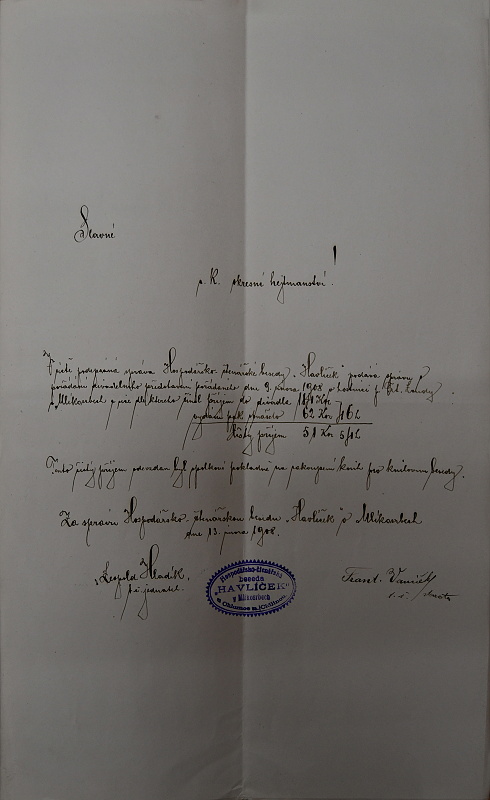 Slavné
c. k. okresní hejtmanství!
podepsaná správa Hospodářsko čtenářské besedy "Havlíček" podává zprávu o
pořádání divadelního představení pořádaného dne 9. února 1908 o hodině
v Mlékosrbech a sice dle kterého příjem do divadla
vydání pak obnášelo 62 Kor 46 h
čistý příjem 51 Kor 54 h
Tento čistý příjem odevzdán byl spolkové pokladně na zakoupení knih pro knihovnu besedy.
Za správu Hospodářsko čtenářskou besedu "Havlíček" v Mlékosrbech
dne 13. února 1908.
Leopold Hladík, Frant.
t. č. jednatel.
Hospodářsko-čtenářská
beseda
"HAVLÍČEK"
v Mlékosrbech
u Chlumce n. Cidlinou